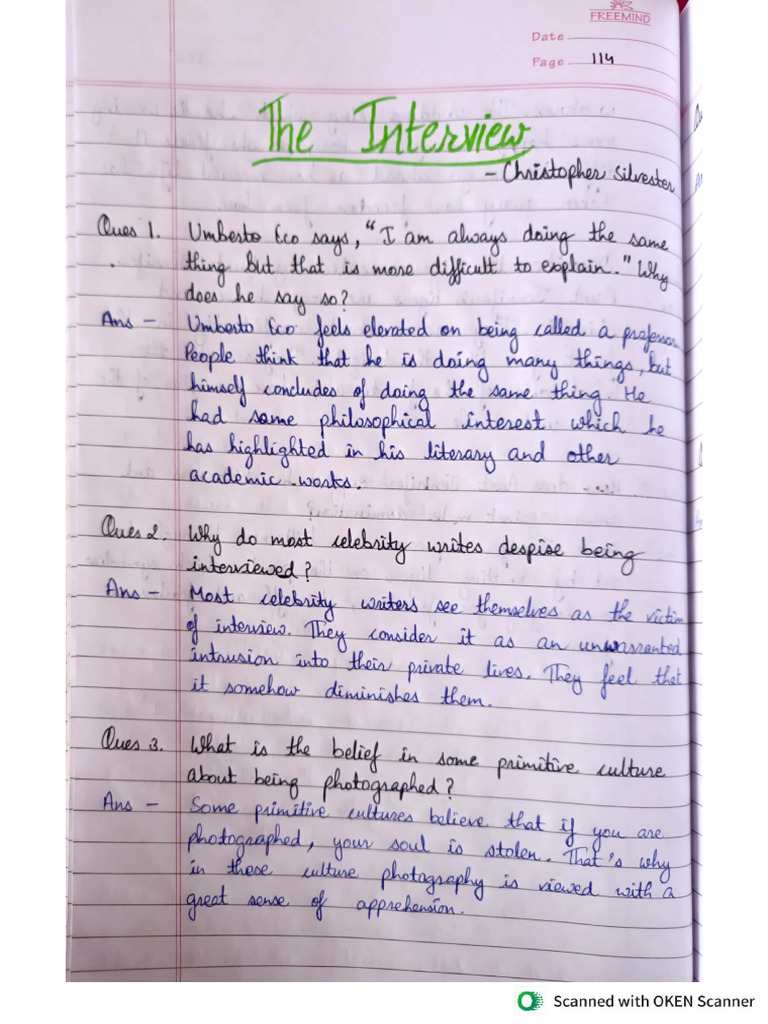 FREEMIND
Date
Page 114
The Interview
- Christopher Silvester
Ques 1. Umberto Eco says, "I am always doing the same
thing but that is more difficult to explain." Why
does he say so?
Ans - Umberto Eco feels elevated on being called a professor.
People think that he is doing many things, but
himself concludes of doing the same thing. He
had some philosophical interest which he
has highlighted in his literary and other
academic works.
Ques 2. Why do most celebrity writes despise being
interviewed?
Ans - Most celebrity writers see themselves as the victim
of interview. They consider it as an unwarranted
intrusion into their private lives. They feel that
it somehow diminishes them.
Ques 3. What is the belief in some primitive culture
about being photographed?
Ans - Some primitive cultures believe that if you are
photographed, your soul is stolen. That's why
in these culture photography is viewed with a
great sense of apprehension.
Scanned with OKEN Scanner